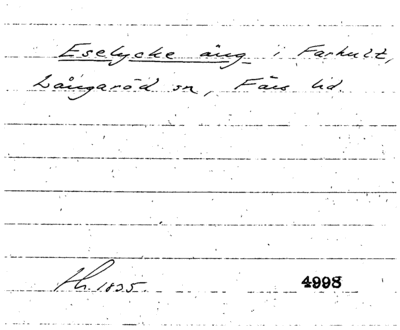 Eselycke äng i Farhult,
Långaröd sn, Färs hd.
Hl. 1835. 4998